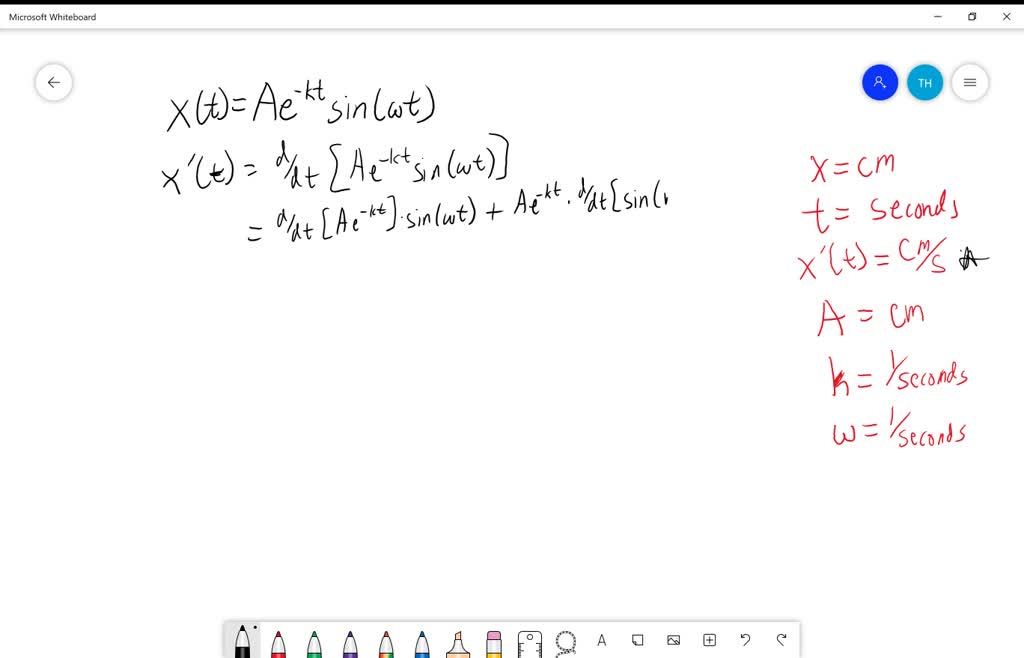 Microsoft Whiteboard
TH
x(t)=Ae^-kt sin(ωt)
x'(t) = d/dt [Ae^-kt sin(ωt)]
= d/dt [Ae^-kt]·sin(ωt) + Ae^-kt · d/dt [sin(
x = cm
t = seconds
x'(t) = cm/s
A = cm
k = 1/seconds
ω = 1/seconds
A